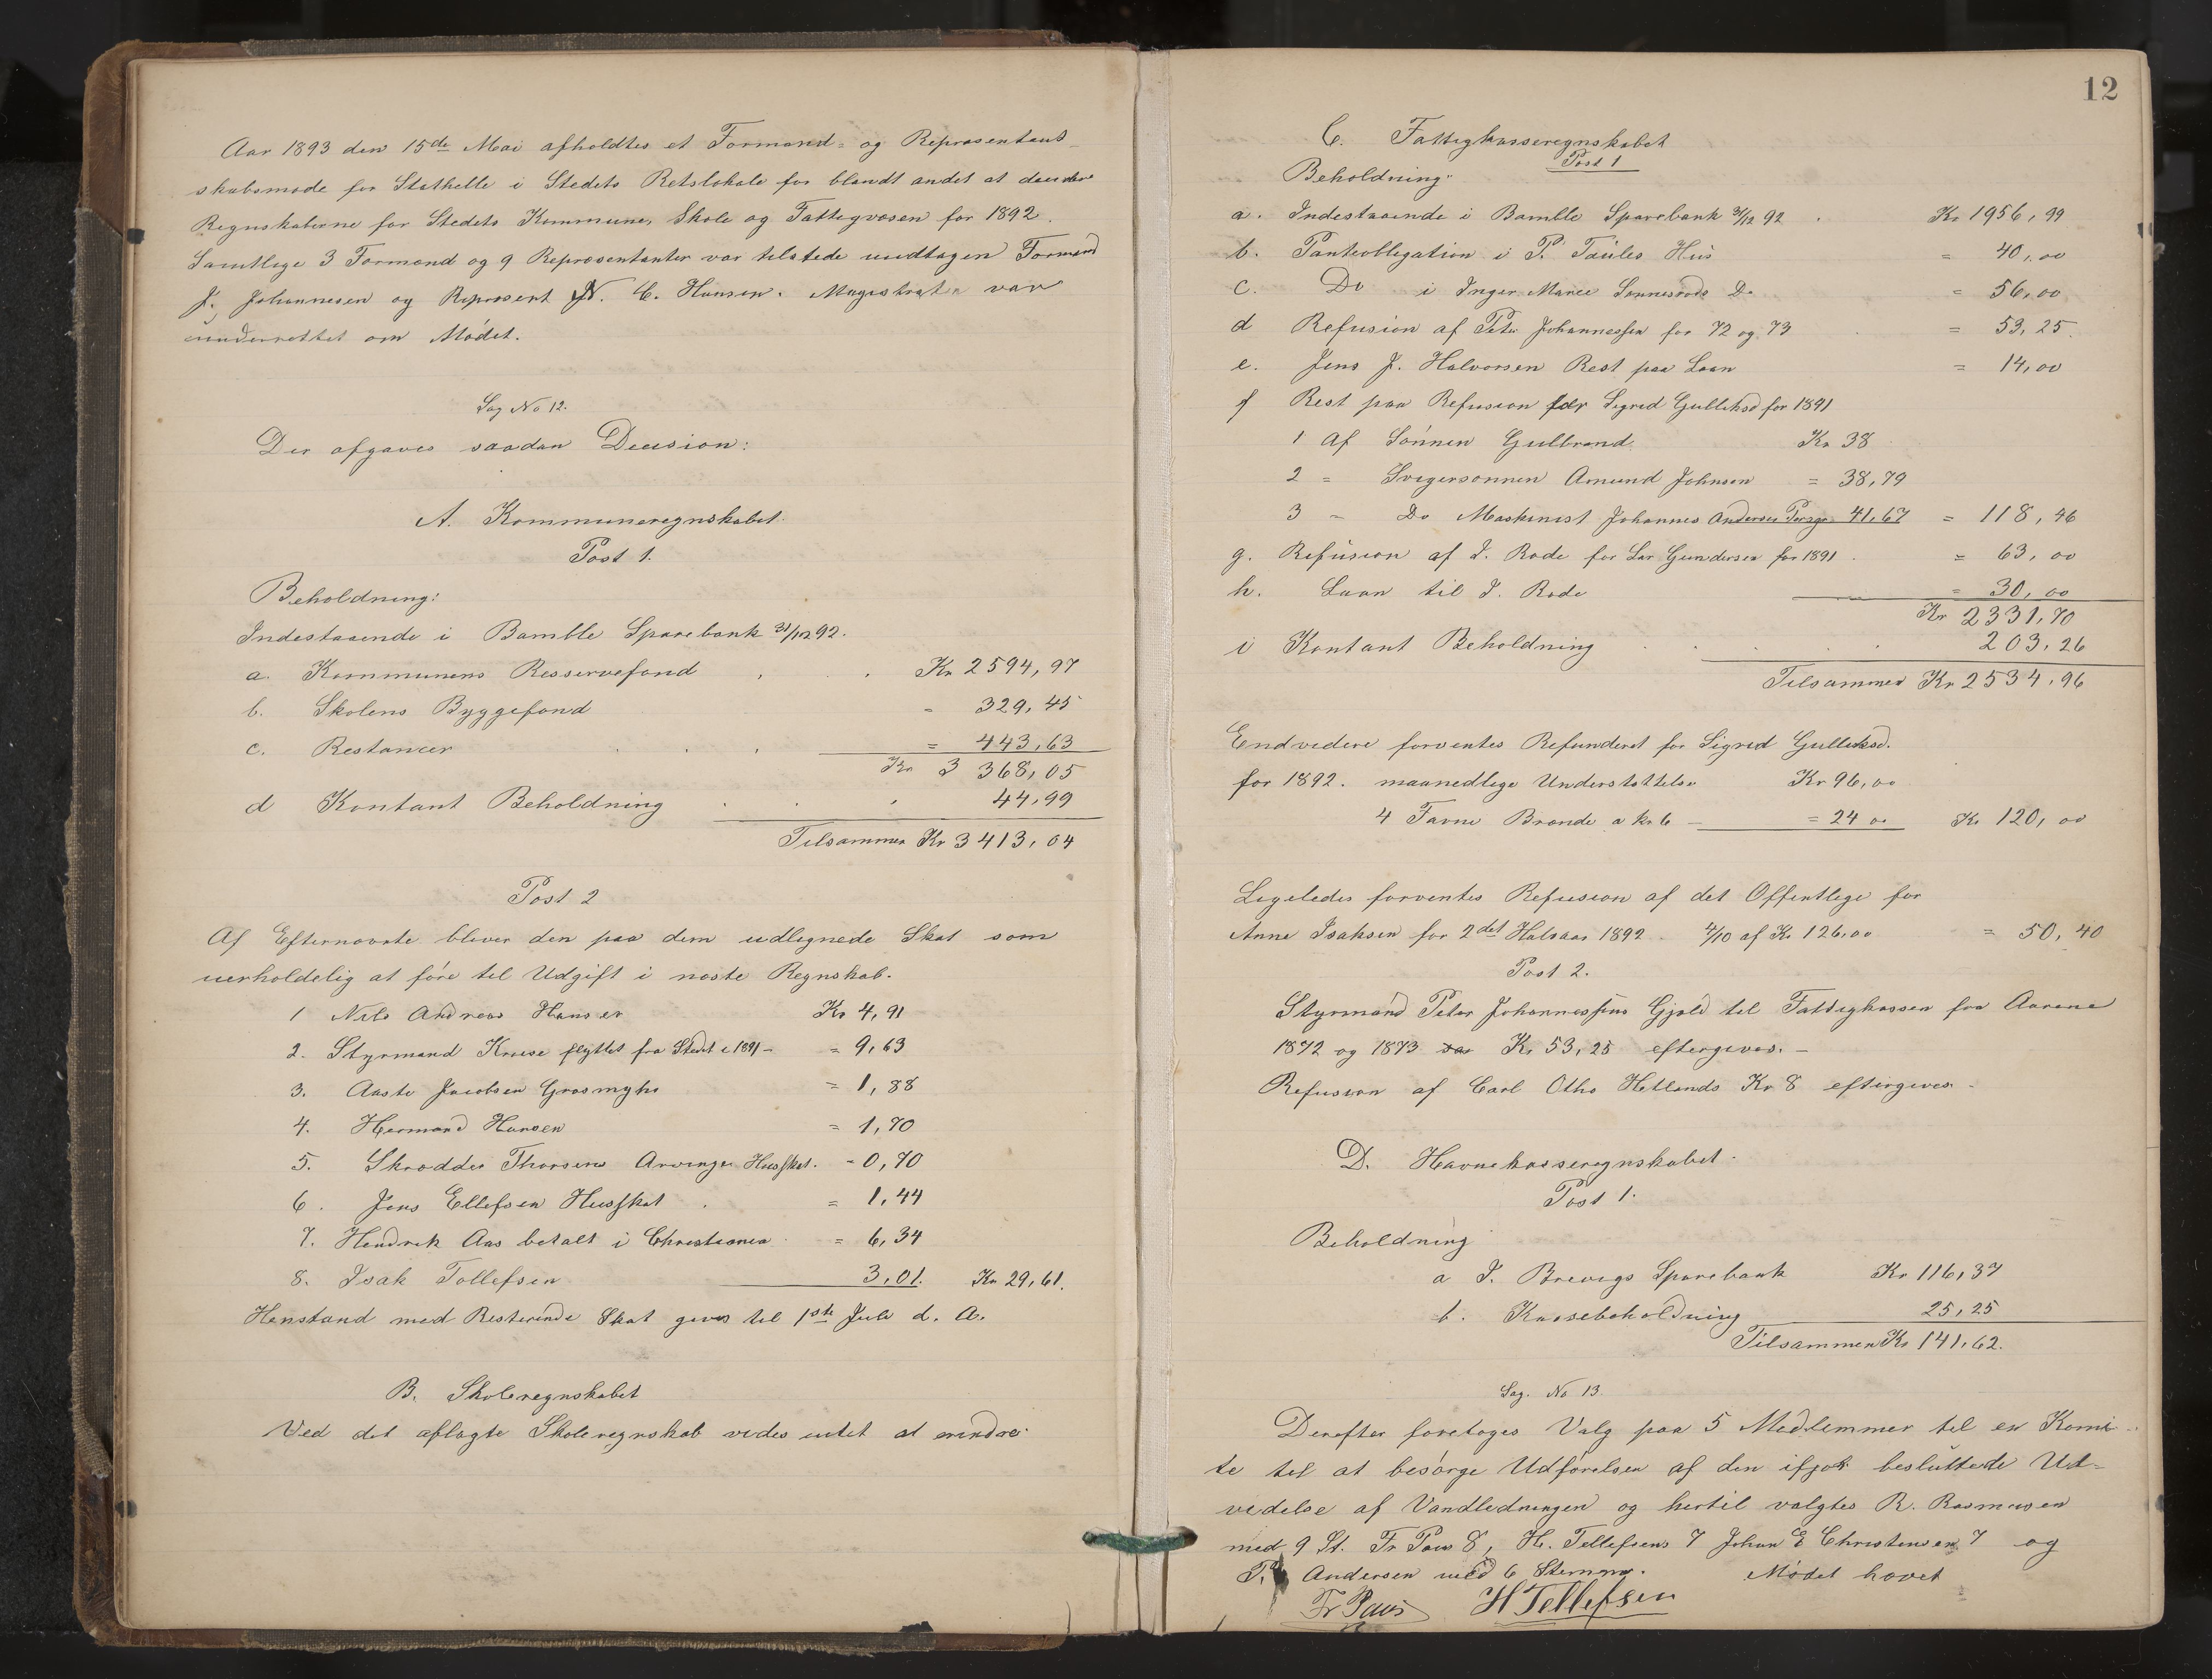 Aar 1893 den 15de Mai afholdtes et Formand- og Repræsentant-
skabsmøde for Stathelle i Stedets Retslokale for blandt andet at
Regnskaberne for Stedets Kommune, Skole og Fattigvæsen for 1892.
Samtlige 3 Formænd og 9 Repræsentanter var tilstede undtagen Formand
J. Johannesen og Repræsent N. C. Hansen. Magistraten var
underrettet om Mødet.
Sag No 12.
Der afgaves saadan Decision:
A. Kommuneregnskabet.
Post 1.
Beholdning:
Indestaaende i Bamble Sparebank 31/12 92.
a. Kommunens Reservefond Kr 2594,97
b. Skolens Byggefond = 329,45
c. Restancer = 443,63
Kr 3 368,05
d Kontant Beholdning 44,99
Tilsammen Kr 3413,04
Post 2
Af Efternævnte bliver den paa dem udlignede Skat som
uerholdelig at føre til Udgift i næste Regnskab.
1 Nils Andreas Hansen Kr 4,91
2. Styrmand Kruse flyttet fra Stedet i 1891 - = 9,63
3. Aaste Jacobsen Græsmyhr = 1,88
4. Hermand Hansen = 1,70
5. Skrædder Thorsens Arvinger Husskat. - 0,70
6. Jens Ellefsen Husskat = 1,44
7. Hendrik Aas betalt i Christiania = 6,34
8. Isak Tollefsen 3,01. Kr 29,61.
Henstand med Resterende Skat gives til 1ste Juli d. A.
B. Skoleregnskabet
Ved det aflagte Skoleregnskab vides intet at erindre.
12
C. Fattigkasseregnskabet
Post 1
Beholdning:
a. Indestaaende i Bamble Sparebank 31/12 92 Kr 1956,99
b. Panteobligation i P. Hus = 40,00
c. Do i Inger Marie Do = 56,00
d Refusion af Peter Johannessen for 72 og 73 = 53,25
e. Jens J. Halvorsen Rest paa Laan = 14,00
f Rest paa Refusion for Sigrid Gulliksd for 1891
1 Af Sønnen Gulbrand Kr 38
2 = Svigersønnen Amund Johnsen = 38,79
3 - Do Maskinist Johannes Andersen 41,67 = 118,46
g. Refusion af I. Rode for Lar Gundersen for 1891 = 63,00
h. Laan til I. Rode = 30,00
Kr 2331,70
i Kontant Beholdning 203,26
Tilsammen Kr 2534,96
Endvidere forventes Refunderet for Sigrid Gulliksd.
for 1892. maanedlige Understøttelse Kr 96,00
4 Favne Brænde a kr 6 - = 24 00 Kr 120,00
Ligeledes forventes Refusion af det Offentlige for
Anne Isaksen for 2det Halvaar 1892. 4/10 af Kr 126,00 = 50,40
Post 2.
Styrmand Peter Johannessens Gjæld til Fattigkassen fra Aarene
1872 og 1873 Kr 53,25 eftergives. -
Refusion af Carl Otho Hetlands Kr 8 eftergives -
D. Havnekasseregnskabet.
Post 1.
Beholdning
a I. Brevigs Sparebank Kr 116,37
b. Kassebeholdning 25,25
Tilsammen Kr 141,62.
Sag. No 13.
Derefter foretoges Valg paa 5 Medlemmer til en Komi-
te til at besørge Udførelsen af den ifjor besluttede Ud-
videlse af Vandledningen og hertil valgtes R. Rasmusen
med 9 St. Fr Paus 8, H. Tellefsens 7 Johan E Christensen 7 og
Andersen med 6 Stemmer. Mødet hævet
Fr Paus H Tellefsen